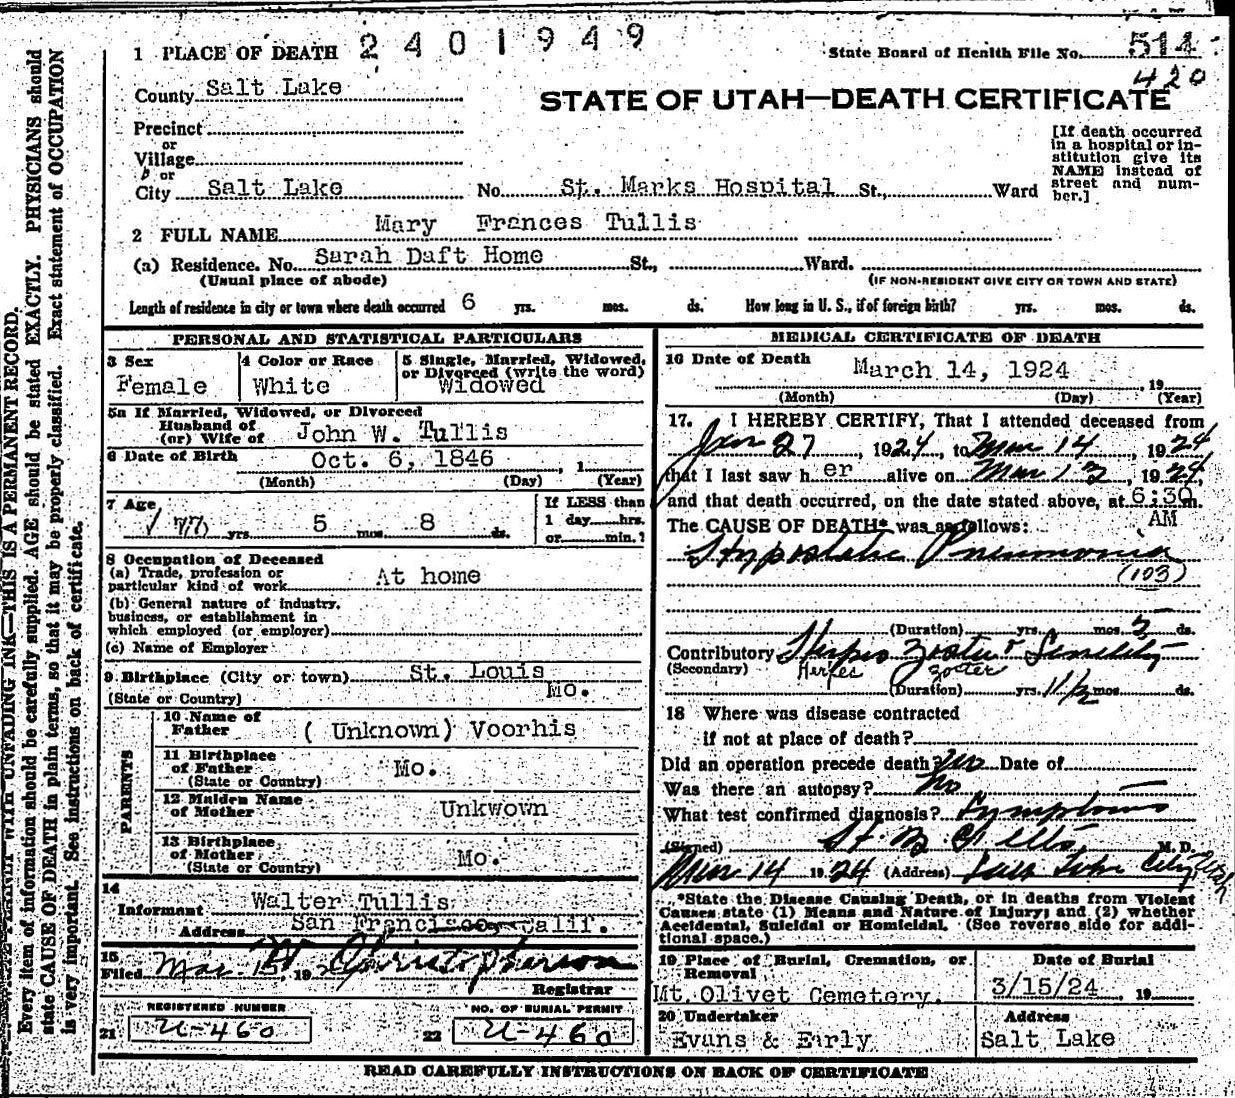 1 PLACE OF DEATH 2401949
State Board of Health File No. 514
420
County Salt Lake
STATE OF UTAH—DEATH CERTIFICATE
Precinct
or
Village
or
City Salt Lake No. St. Marks Hospital St., Ward
[If death occurred
in a hospital or in-
stitution give its
NAME instead of
street and num-
ber.]
2 FULL NAME Mary Frances Tullis
(a) Residence. No. Sarah Daft Home St., Ward.
(Usual place of abode) (IF NON-RESIDENT GIVE CITY OR TOWN AND STATE)
Length of residence in city or town where death occurred 6 yrs. mos. ds. How long in U. S., if of foreign birth? yrs. mos. ds.
PERSONAL AND STATISTICAL PARTICULARS
3 Sex
Female
4 Color or Race
White
5 Single, Married, Widowed,
or Divorced (write the word)
Widowed
5a If Married, Widowed, or Divorced
Husband of
(or) Wife of John W. Tullis
6 Date of Birth Oct. 6, 1846, 1
(Month) (Day) (Year)
7 Age
77 yrs. 5 mos. 8 ds.
If LESS than
1 day hrs.
or min.?
8 Occupation of Deceased
(a) Trade, profession or
particular kind of work At home
(b) General nature of industry,
business, or establishment in
which employed (or employer)
(c) Name of Employer
9 Birthplace (City or town) St. Louis
(State or Country) Mo.
PARENTS
10 Name of
Father (Unknown) Voorhis
11 Birthplace
of Father Mo.
(State or Country)
12 Maiden Name
of Mother Unkwown
13 Birthplace
of Mother Mo.
(State or Country)
14
Informant Walter Tullis
Address San Francisco, Calif.
15
Filed Mar. 15, 19 Christopherson
Registrar
REGISTERED NUMBER
21 U-460
NO. OF BURIAL PERMIT
22 U-460
MEDICAL CERTIFICATE OF DEATH
16 Date of Death March 14, 1924, 19
(Month) (Day) (Year)
17. I HEREBY CERTIFY, That I attended deceased from
Jan 27, 1924, to Mar 14, 1924
that I last saw her alive on Mar 12, 1924,
and that death occurred, on the date stated above, at 6:30 m.
AM
The CAUSE OF DEATH* was as follows:
Hypostatic Pneumonia
(103)
(Duration) yrs. mos. 2 ds.
Contributory Herpes Zoster & Senility
(Secondary) Herpes Zoster
(Duration) yrs. 1 1/2 mos. ds.
18 Where was disease contracted
if not at place of death?
Did an operation precede death? No Date of
Was there an autopsy? No
What test confirmed diagnosis? Symptoms
(Signed) M. D.
Mar 14 1924 (Address) Salt Lake City Utah
*State the Disease Causing Death, or in deaths from Violent
Causes state (1) Means and Nature of Injury; and (2) whether
Accidental, Suicidal or Homicidal. (See reverse side for addi-
tional space.)
19 Place of Burial, Cremation, or
Removal
Mt. Olivet Cemetery.
Date of Burial
3/15/24, 19
20 Undertaker
Evans & Early
Address
Salt Lake
READ CAREFULLY INSTRUCTIONS ON BACK OF CERTIFICATE
WRITE PLAINLY WITH UNFADING INK—THIS IS A PERMANENT RECORD.
Every item of information should be carefully supplied. AGE should be stated EXACTLY. PHYSICIANS should
state CAUSE OF DEATH in plain terms, so that it may be properly classified. Exact statement of OCCUPATION
is very important. See instructions on back of certificate.